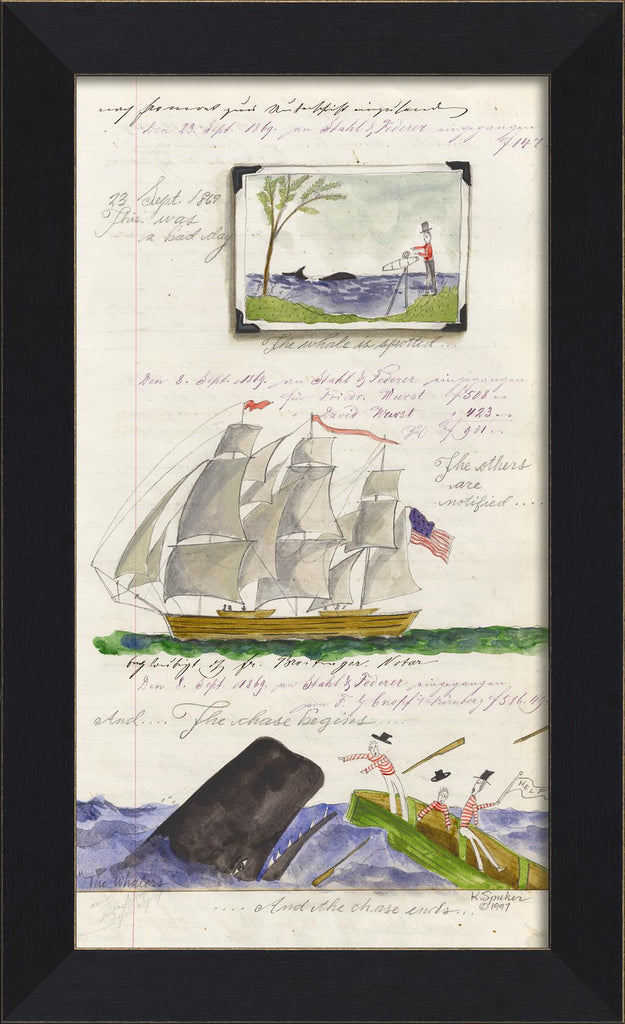 nach Hermont zur Unterschrift einzusenden
Den 23. Sept. 1869. an Stahl & Federer eingegangen
f 147
23 Sept. 1869
This was
a bad day
The whale is spotted...
Den 8. Sept. 1869. an Stahl & Federer eingegangen
für Friedr. Wurst f 508 -
David Wurst " 423 -
f 931 -
The others
are
notified....
Notar
Den 8. Sept. 1869. an Stahl & Federer eingegangen
von F. G. Nürnberg f 516.49
And.... The chase begins....
HELP
"The Whalers"
K. Spicher
©1997
.... And the chase ends...